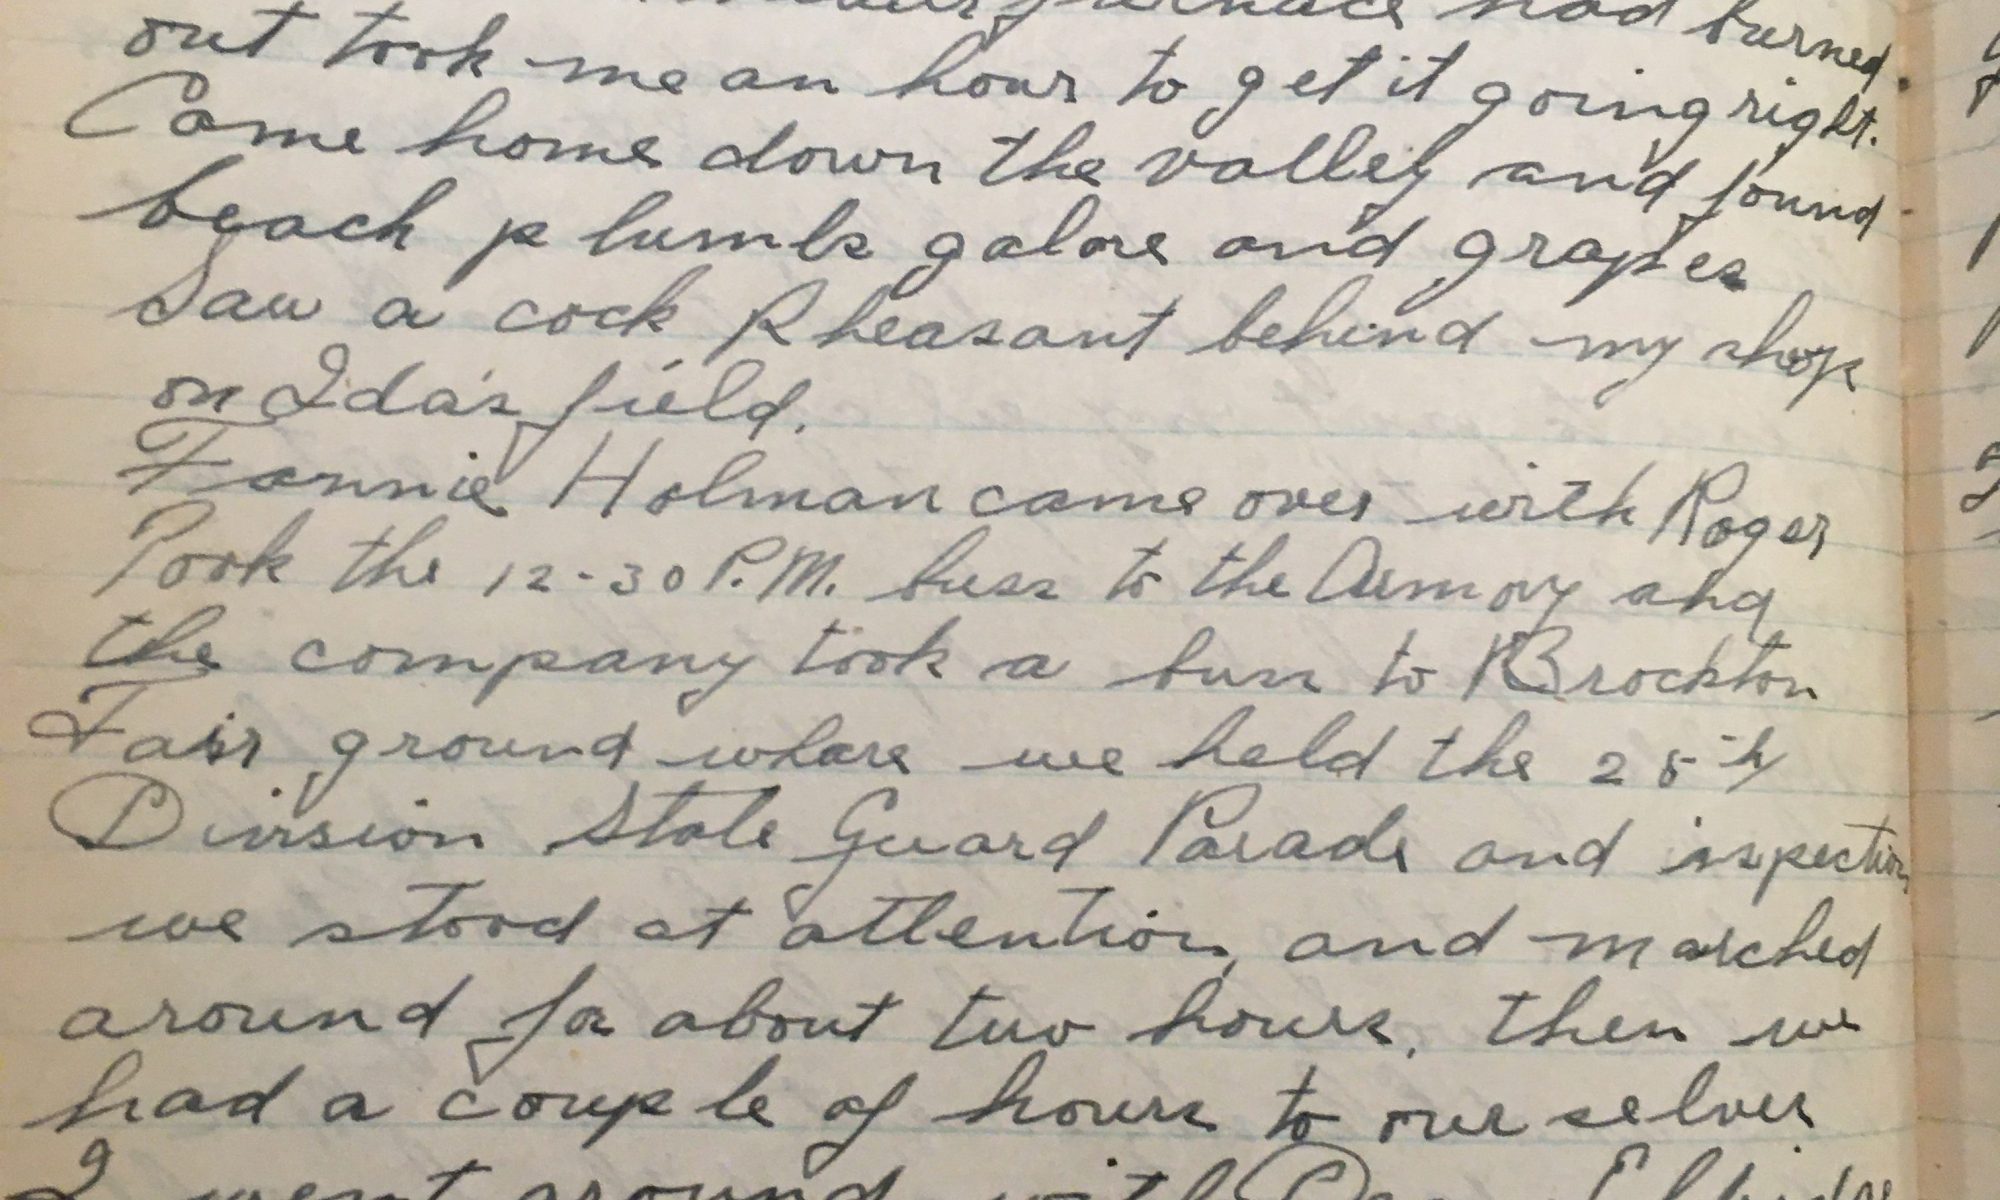 furnace had burned
out took me an hour to get it going right.
Came home down the valley and found
beach plumbs galore and grapes
Saw a cock Pheasant behind my shop
on Ida's field.
Fannie Holman came over with Roger
Took the 12-30 P.M. buss to the Armory and
the company took a bus to Brockton
Fair ground where we held the 25th
Division State Guard Parade and inspection
we stood at attention, and marched
around for about two hours, then we
had a couple of hours to our selves
I went around with